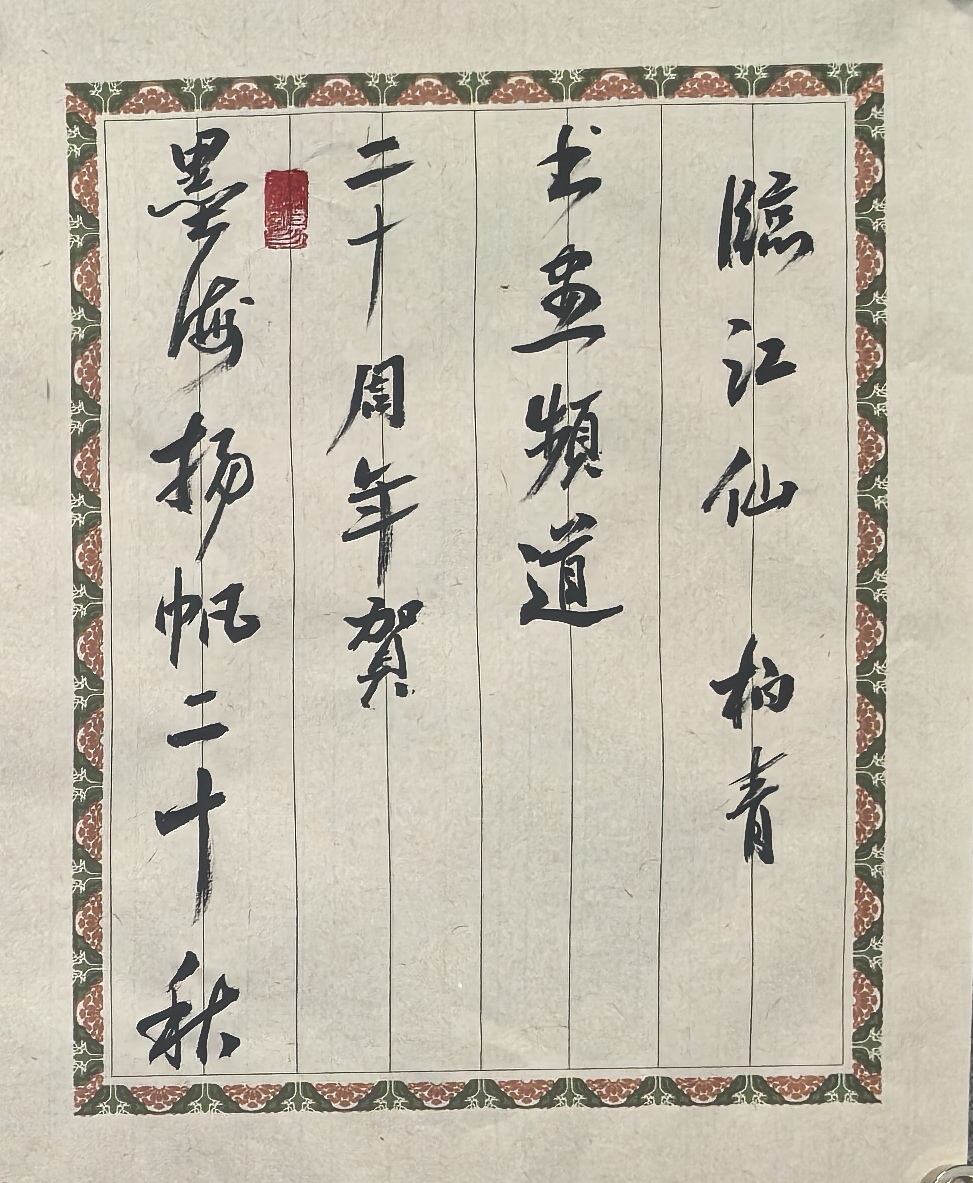 臨江仙 柏青
书画頻道
二十周年賀
墨海扬帆二十秋